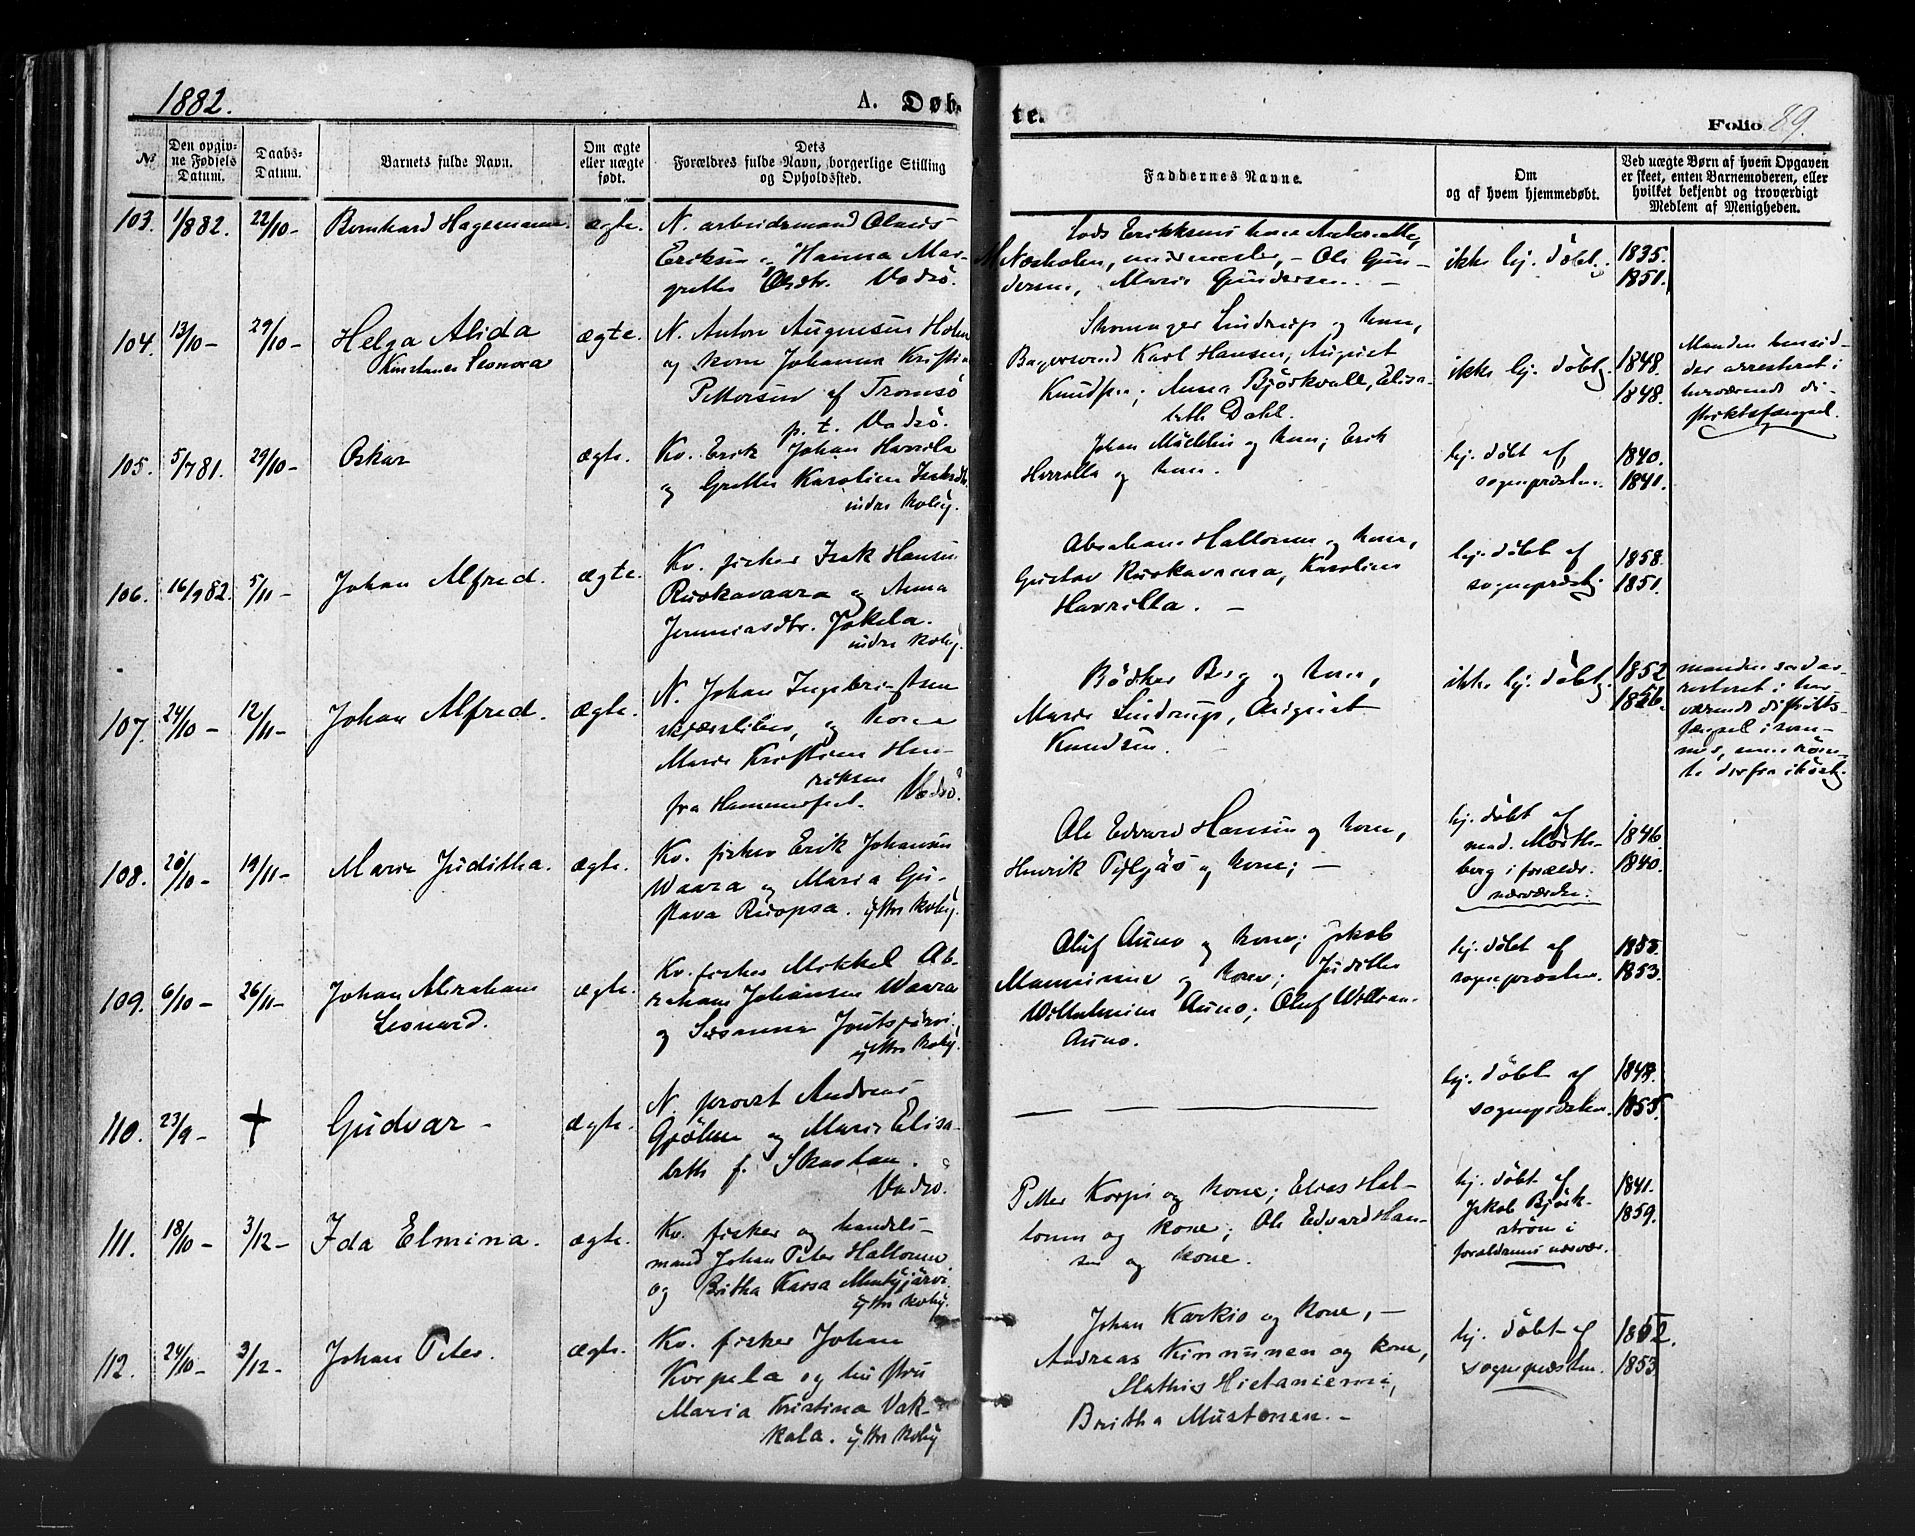 1882.
A. Døb-
te.
Folio 89.
№
Den opgiv-
ne Fødsels
Datum.
Daabs-
Datum.
Barnets fulde Navn.
Om ægte
eller uægte
født.
Dets
Forældres fulde Navn, borgerlige Stilling
og Opholdssted.
Faddernes Navne.
Om
og af hvem hjemmedøbt.
Ved uægte Børn af hvem Opgaven
er skeet, enten Barnemoderen, eller
hvilket bekjendt og troværdigt
Medlem af Menigheden.
103. 1/8 82. 22/10- Bernhard Hagemann. ægte.
N. arbeidsmand Olaus
Eriksen og Hanna Mar-
grethe Vadsö.
Lods Eriksens kone
Ole Gun-
dersen, Marie Gundersen. -
ikke hj. döbt.
1835.
1851.
104. 13/10- 29/10- Helga Alida
Konstance Leonora
ægte.
N. Anton Augensen Holm
og kone Johanna Kristin
Pettersen af Tromsö
p. t. Vadsö.
Skomager Lindrup og kone,
Bagersvend Karl Hansen, August
Knudsen, Anna Björkvall, Elisa-
beth Dahl.
ikke hj. döbt
1848.
1848.
Manden
der arresteret i
herværende di-
striktsfængsel.
105. 5/7 81. 29/10- Oskar ægte.
Kv. Erik Johan Harrila
og Grethe Karolin
indre kvby.
Johan og kone; Erik
Harrilla og kone.
hj. döbt af
sognepræsten.
1840.
1841.
106. 16/9 82. 5/11- Johan Alfred. ægte.
Kv. fisker Isak Hansen
Ruokavaara og Anna
Jeremiasdtr. Jokela.
indre kvby.
Abraham Hallonen og kone,
Gustav Ruokavaara, Karolin
Harrilla. -
hj. döbt af
sognepræst
1858.
1851.
107. 24/10- 12/11- Johan Alfred. ægte.
N. Johan Ingebrigtsen
skjærsliber, og kone
Marie Kristine Hen-
riksen
fra Hammerfest. Vadsö.
Bödker Berg og kone,
Marie Lindrup, August
Knudsen.
ikke hj. döbt
1852
1856.
manden
resteret i her-
værende distrikts-
fængsel i
108. 20/10- 19/11- Marie Juditha. ægte.
Kv. fisker Erik Johansen
Waara og Maria Gu-
stava Ruopsa. ytter kvby.
Ole Edvard Hansen og kone,
Henrik og kone; -
hj. döbt af
mad.
berg i forældr.
nærværelse.
1846.
1840.
109. 6/10- 26/11- Johan Abraham
Leonard.
ægte.
Kv. fisker Mikkel Ab-
raham Johansen Waara
og Susanna Joutsjärvi,
ytter kvby.
Oluf Auno og kone; Jakob
Manninen og kone; Judithe
Wilhelmine Auno; Oluf
Auno.
hj. döbt af
sognepræsten.
1855.
1853.
110. 23/9- + Gudvar - ægte.
N. provst Andreas
Gjölme og Marie Elisa-
beth f. Skavlan.
Vadsö.
hj. döbt af
sognepræsten.
1848.
1855.
111. 18/10- 3/12- Ida Elmina. ægte.
Kv. fisker og handels-
mand Johan Peter Hallonen
og Britha Kaisa
ytter kvby.
Petter Korpi og kone; Elias Hal-
lonen og kone; Ole Edvard Han-
sen og kone.
hj. döbt af
Jakob Björk-
ström i
forældrenes nærvær.
1841.
1859.
112. 24/10- 3/12- Johan Peter. ægte.
Kv. fisker Johan
Korpela og hustru
Maria Kristina Vak-
kala. ytter kvby
Johan Karkio og kone, -
Andreas Kinnunen og kone,
Mathis Hietaniemi,
Britha Mustonen. -
hj. döbt af
sognepræsten.
1852.
1853.